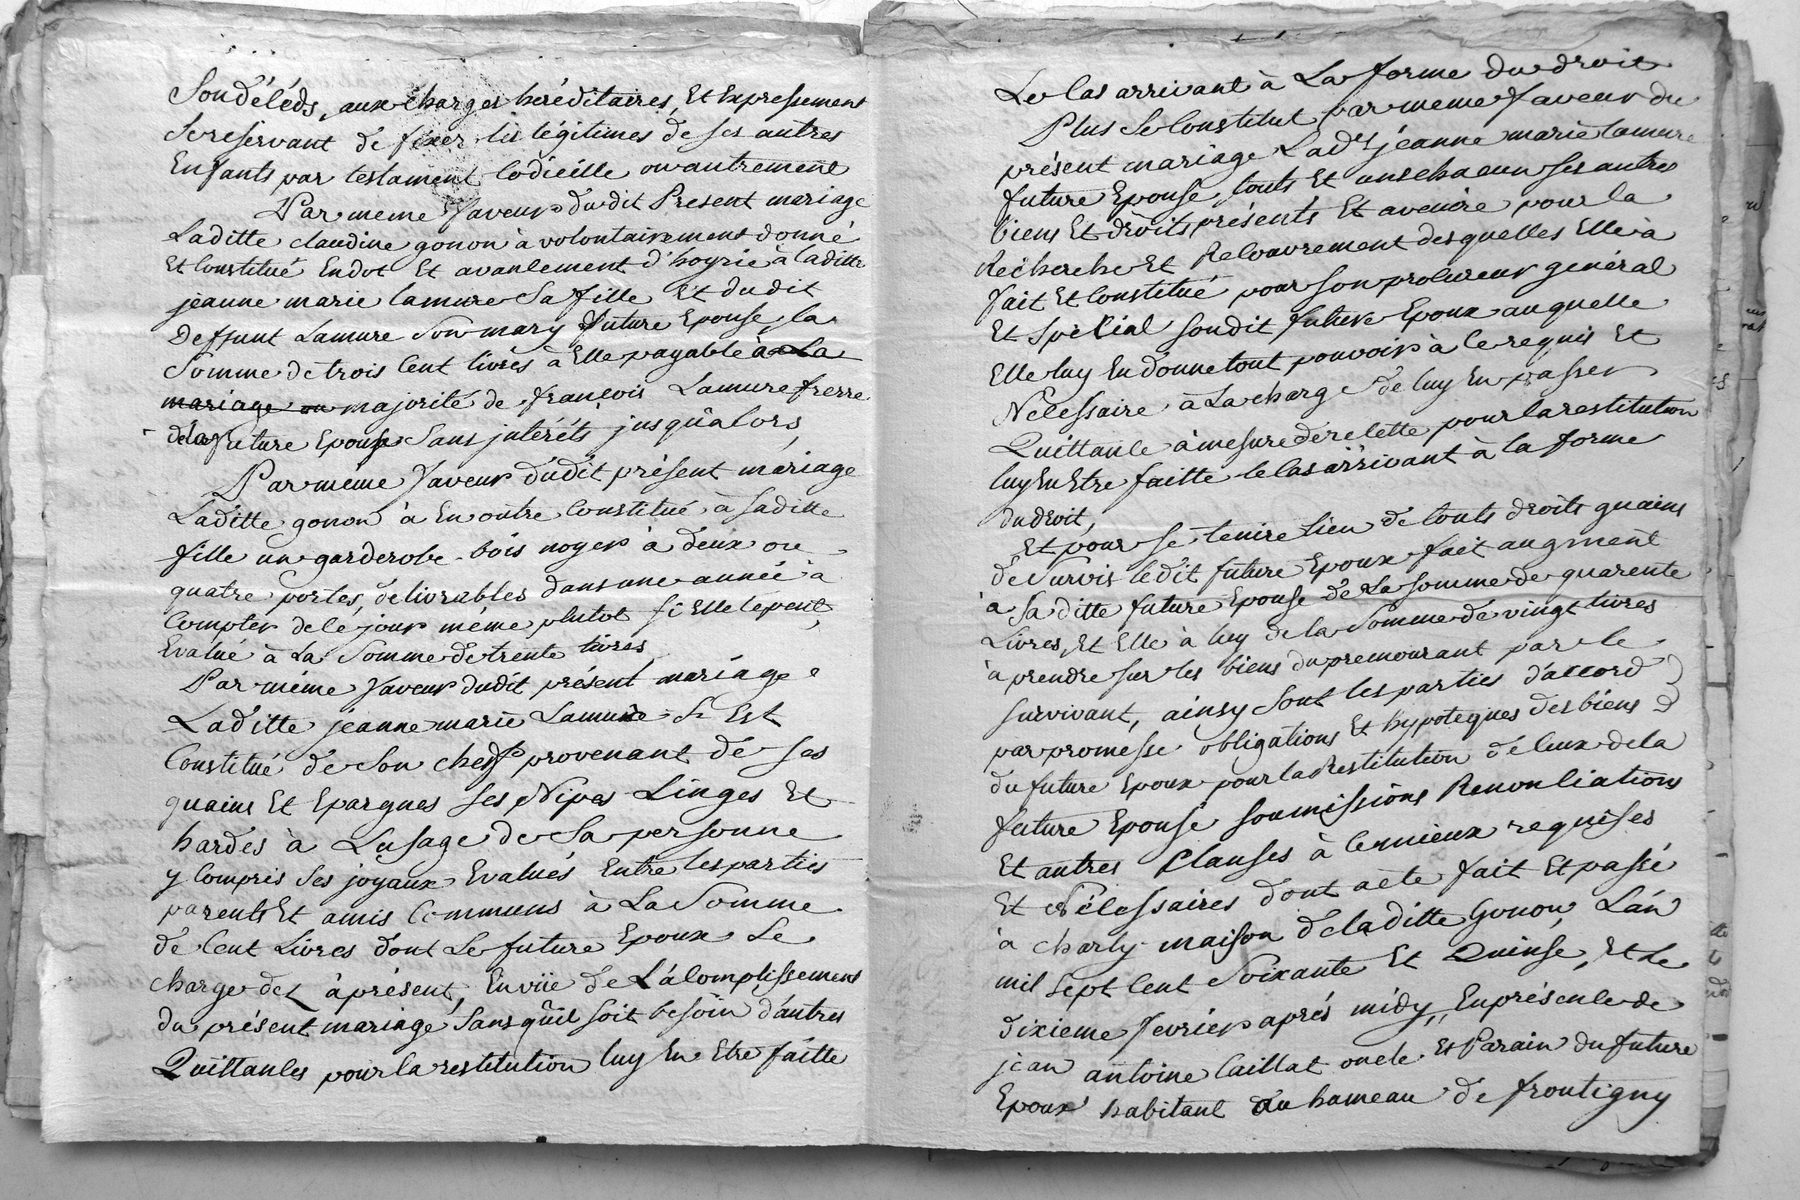 Son déléds, aux charges héréditaires, Et Expressement
Se reservant de fixer les légitimes de ses autres
Enfants par testament Codicille ou autrement
Par meme faveur du dit Present mariage
Laditte claudine gonon à volontairement donné
Et Constitué En dot Et avancement d'hoyrie à laditte
jeanne marie lamure Sa fille Et du dit
Deffunt Lamure Son mary future Epouse, la
Somme de trois Cent livres à Elle payable à la
mariage ou majorité de françois Lamure frerre
de la future Epouse Sans interéts jusqu'alors,
Par même faveur dudit présent mariage
Laditte gonon à En outre Constitué à Saditte
fille un garderobe bois noyer à deux ou
quatre portes, délivrables dans une année à
Compter de ce jour même plutot Si Elle le peut,
Evalué à La Somme de trente livres
Par même faveur dudit présent mariage
Laditte jeanne marie Lamure S'Est
Constitué de Son cheff provenant de Ses
guains Et Epargnes Ses Nipes Linges Et
hardes à Lusage de Sa personne
y Compris Ses joyaux Evalués Entre les parties
parents Et amis Communs à La Somme
de Cent Livres dont Le future Epoux Se
charge dez àprésent, En vüe de L'acomplissement
du présent mariage Sans qûil soit besoin d'autres
Quittances pour la restitution luy En Etre faitte
Le Cas arrivant à La forme du droit
Plus Se Constitut par meme faveur du
présent mariage Ladte jeanne marie lamure
future Epouse, touts Et uns chacun Ses autres
biens Et droits présents Et avenire pour la
Recherche Et Recouvrement desquelles Elle à
fait Et Constitué pour Son procureur genéral
Et Spécial Son dit future Epoux au quelle
Elle luy En donne tout pouvoir à Ce requis Et
Nécessaire à La charge de luy En passer
Quittance à mesure de recette pour la restitution
luy En Etre faitte le Cas arrivant à la forme
du droit,
Et pour Se tenire Lieu de touts droits guains
de Survis ledit future Epoux fait augment
à Sa ditte future Epouse de La Somme de quarente
Livres, Et Elle à luy de la Somme de vingt livres
à prendre Sur les biens du premourant par le
Survivant, ainsy Sont les parties d'accord
par promesse obligations Et hypoteques des biens
du future Epoux pour la Restitution de Ceux de la
future Epouse Soumissions Renonciations
Et autres Clauses à Ce mieux requises
Et Nécessaires dont acte fait Et passé
à charly maison de laditte Gonon, L'an
mil Sept Cent Soixante Et Quinse, Et Le
dixieme fevrier aprés midy, En présence de
jean antoine Caillat oncle Et Parain du future
Epoux habitant au hameau de frontigny